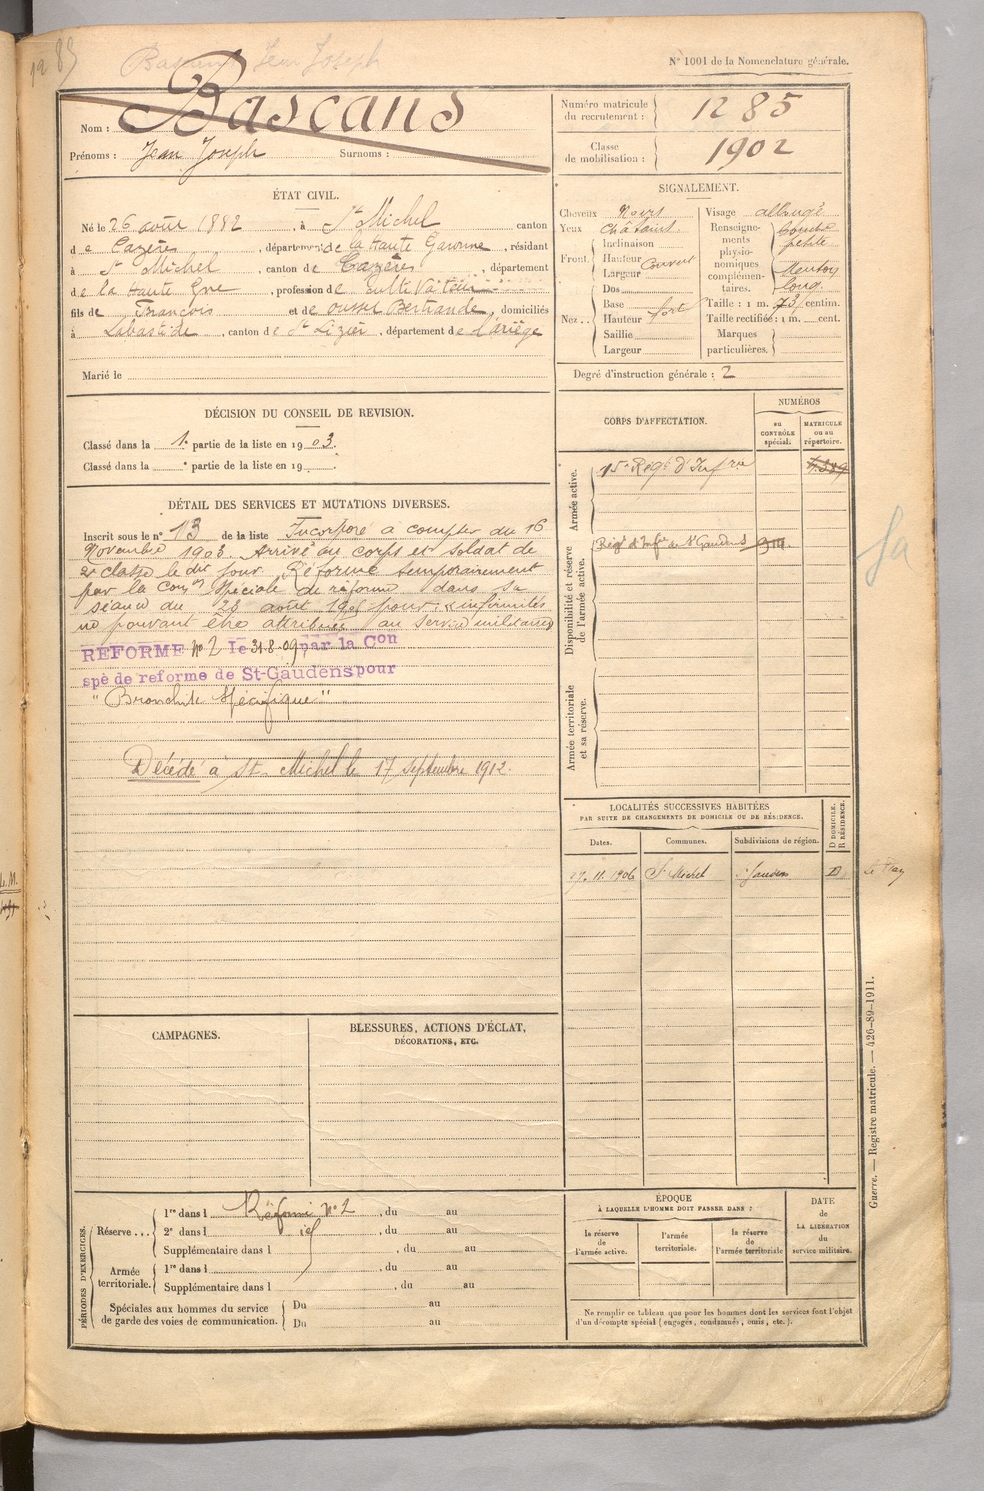 1285
Bascans Jean Joseph
N° 1001 de la Nomenclature générale.
Nom : Bascans
Prénoms : Jean Joseph Surnoms :
Numéro matricule du recrutement : 1285
Classe de mobilisation : 1902
ÉTAT CIVIL.
Né le 26 août 1882, à St Michel canton
de Cazères, département de la Haute Garonne, résidant
à St Michel, canton de Cazères, département
de la Haute Gne, profession de Cultivateur
fils de François et de Oussu Bertrande, domiciliés
à Labastide, canton de St Lizier, département de l'ariège
Marié le
SIGNALEMENT.
Cheveux Noirs
Yeux Châtains
Front. Inclinaison
Hauteur Couvert
Largeur
Nez.. Dos
Base fort
Hauteur
Saillie
Largeur
Visage allongé
Renseignements physionomiques complémentaires. bouche petite
Menton long
Taille : 1 m. 73 centim.
Taille rectifiée : 1 m. cent.
Marques particulières.
Degré d'instruction générale : 2
DÉCISION DU CONSEIL DE REVISION.
Classé dans la 1e partie de la liste en 1903.
Classé dans la e partie de la liste en 19 .
CORPS D'AFFECTATION.
NUMÉROS
au CONTRÔLE spécial.
MATRICULE ou au répertoire.
Armée active.
15e Régt d'Infrie
Disponibilité et réserve de l'armée active.
Régt d'Infie de St Gaudens
Armée territoriale et sa réserve.
DÉTAIL DES SERVICES ET MUTATIONS DIVERSES.
Inscrit sous le n° 13 de la liste Incorporé à compter du 16
Novembre 1903. Arrivé au corps et soldat de
2e classe le dit jour. Réformé temporairement
par la Comon Spéciale de réforme dans sa
séance du 28 août 1906 pour : « infirmités
ne pouvant être attribuées au service militaire »
REFORME N° 2 le 31.8.09 par la Con
spè de reforme de St-Gaudens pour
"Bronchite Spécifique"
Décédé à St Michel le 17 Septembre 1912.
LOCALITÉS SUCCESSIVES HABITÉES
PAR SUITE DE CHANGEMENTS DE DOMICILE OU DE RÉSIDENCE.
Dates. Communes. Subdivisions de région. D DOMICILE. R RÉSIDENCE.
17.11.1906 St Michel St Gaudens D
CAMPAGNES.
BLESSURES, ACTIONS D'ÉCLAT,
DÉCORATIONS, ETC.
PÉRIODES D'EXERCICES.
Réserve... 1re dans l Réformé N° 2, du au
2e dans l id, du au
Supplémentaire dans l, du au
Armée territoriale. 1re dans l, du au
Supplémentaire dans l, du au
Spéciales aux hommes du service
de garde des voies de communication. Du au
Du au
ÉPOQUE
À LAQUELLE L'HOMME DOIT PASSER DANS :
la réserve de l'armée active.
l'armée territoriale.
la réserve de l'armée territoriale
DATE de LA LIBÉRATION du service militaire.
Ne remplir ce tableau que pour les hommes dont les services font l'objet
d'un décompte spécial (engagés, condamnés, omis, etc.).
Guerre. — Registre matricule. — 426-89-1911.